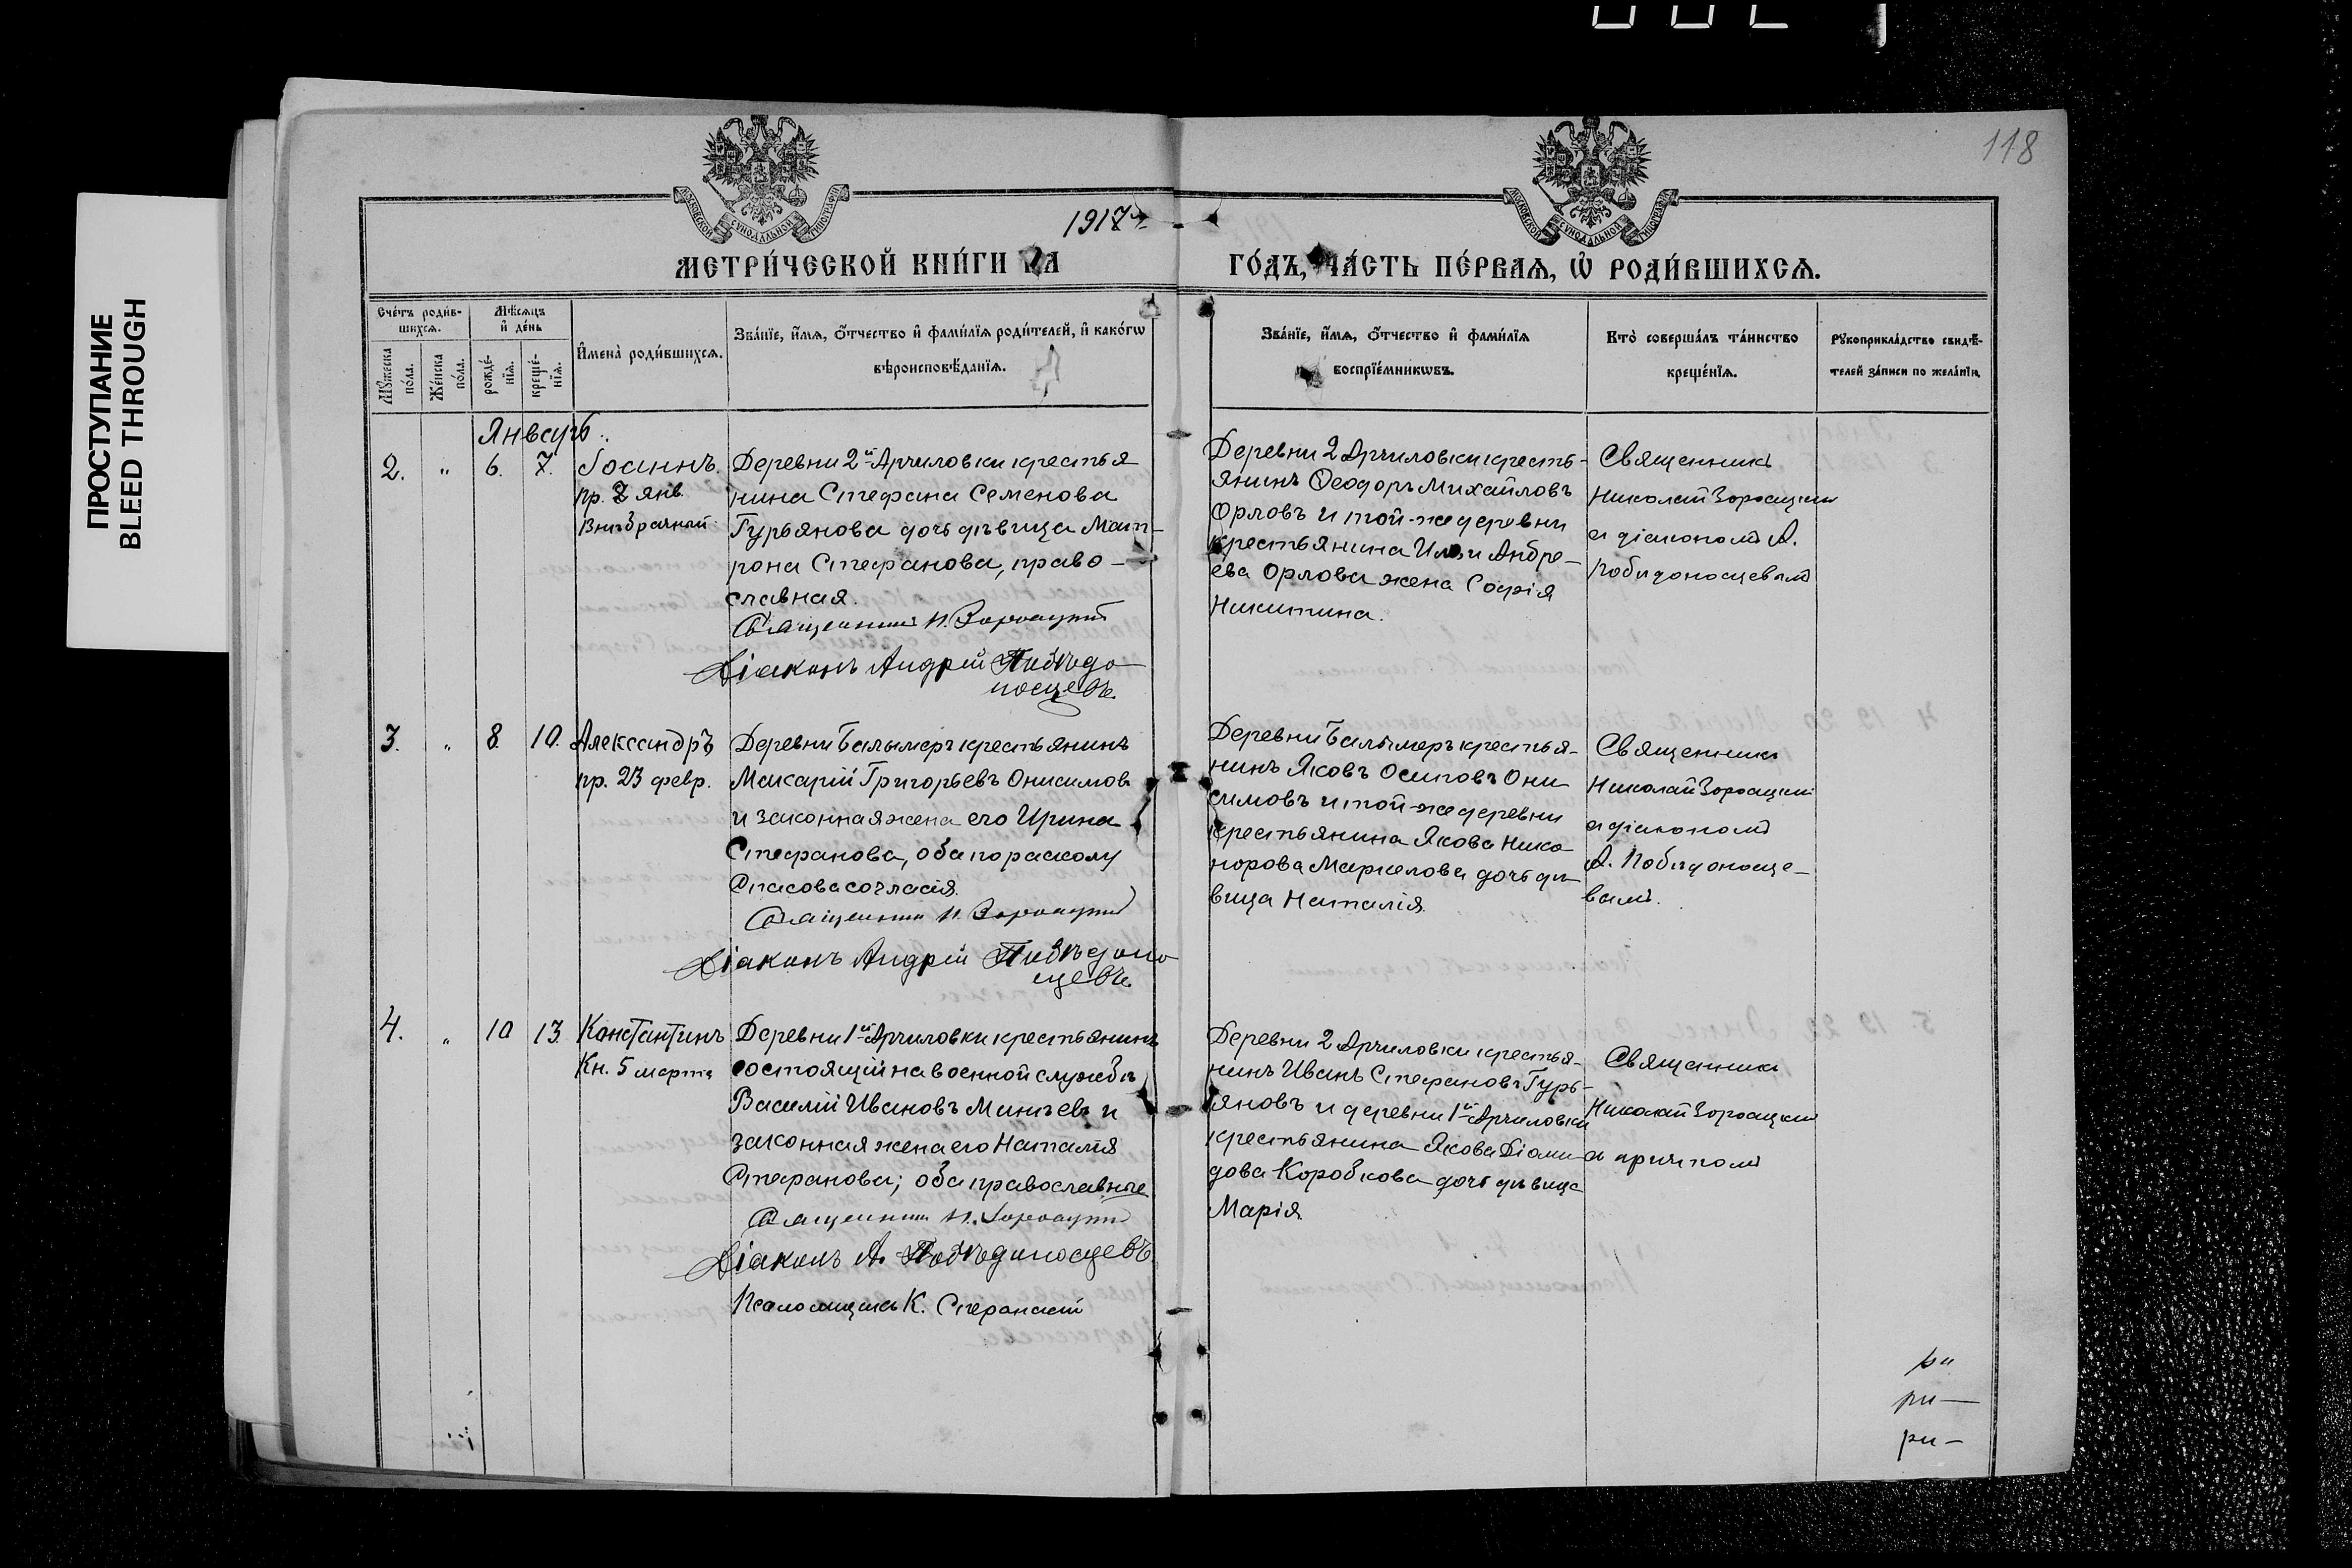 118
ПРОСТУПАНИЕ
BLEED THROUGH
МОСКОВСКОЙ СѴНОДАЛЬНОЙ ТИПОГРАФІИ
МОСКОВСКОЙ СѴНОДАЛЬНОЙ ТИПОГРАФІИ
1917 г.
МЕТРИ́ЧЕСКОЙ КНИ́ГИ НА
ГО́ДЪ, ЧА́СТЬ ПЕ́РВАѦ, Ѡ҆ РОДИ́ВШИХСѦ.
Сче́тъ роди́в-
шихсѧ.
Мѣ́сѧцъ
и҆ де́нь
Мꙋ́жеска
по́ла.
Же́нска
по́ла.
рожде́-
нїѧ.
креще́-
нїѧ.
И҆мена̀ роди́вшихсѧ.
Зва́нїе, и҆́мѧ, ѻ҆́тчество и҆ фами́лїѧ роди́телей, и҆ како́гѡ
вѣроисповѣ́данїѧ.
Зва́нїе, и҆́мѧ, ѻ҆́тчество и҆ фами́лїѧ
воспрїе́мникѡвъ.
Кто̀ соверша́лъ та́инство
креще́нїѧ.
Рꙋкоприкла́дство свидѣ́-
телей за́писи по жела́нїю.
Январь.
2. " 6. 7. Іоаннъ.
пр. 7 янв.
Внѣбрачный
Деревни 2й Арчиловки крестья
нина Стефана Семенова
Гурьянова дочь дѣвица Мат-
рона Стефанова, право-
славная.
Священникъ Н.
Діаконъ Андрей Побѣдо-
носцевъ.
Деревни 2 Арчиловки кресть-
янинъ Ѳеодоръ Михайловъ
Орловъ и той-же деревни
крестьянина Иліи Андре-
ева Орлова жена Софія
Никитина.
Священникъ
Николай
съ діакономъ А.
Побѣдоносцевымъ
3. " 8. 10. Александръ
пр. 23 февр.
Деревни Балымеръ крестьянинъ
Макарій Григорьевъ Онисимовъ
и законная жена его Ирина
Стефанова, оба по расколу
Спасова согласія.
Священникъ Н.
Діаконъ Андрей Побѣдоно
сцевъ.
Деревни Балымеръ крестья-
нинъ Яковъ Осиповъ Они
симовъ и той-же деревни
крестьянина Якова Ника
норова Маркелова дочь дѣ-
вица Наталія.
Священникъ
Николай
съ діакономъ
А. Побѣдоносце-
вымъ.
4. " 10 13. Константинъ
Кн. 5 марта
Деревни 1й Арчиловки крестьянинъ
состоящій на военной службѣ
Василій Ивановъ Минѣевъ и
законная жена его Наталія
Стефанова; оба православные
Священникъ Н.
Діаконъ А. Побѣдоносцевъ.
Псаломщикъ К. Сперанскій
Деревни 2 Арчиловки крестья-
нинъ Иванъ Стефановъ Гурь-
яновъ и деревни 1й Арчиловки
крестьянина Якова Діами-
дова Коробкова дочь дѣвица
Марія.
Священникъ
Николай
съ причтомъ